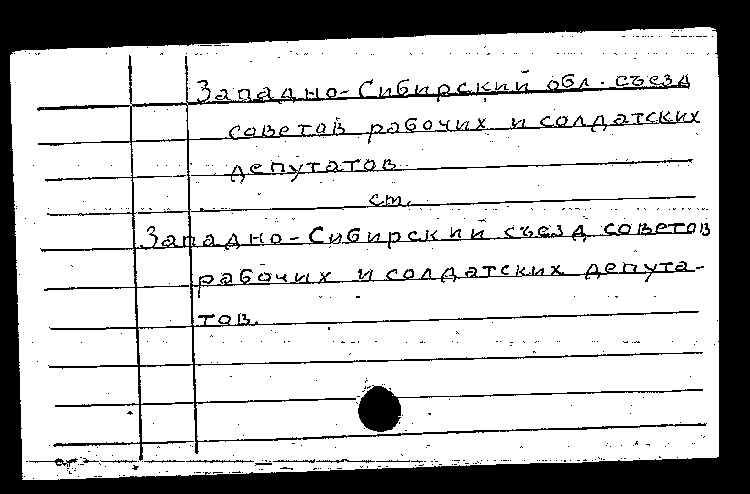 Западно-Сибирский обл. съезд
советов рабочих и солдатских
депутатов
см.
Западно-Сибирский съезд советов
рабочих и солдатских депута-
тов.